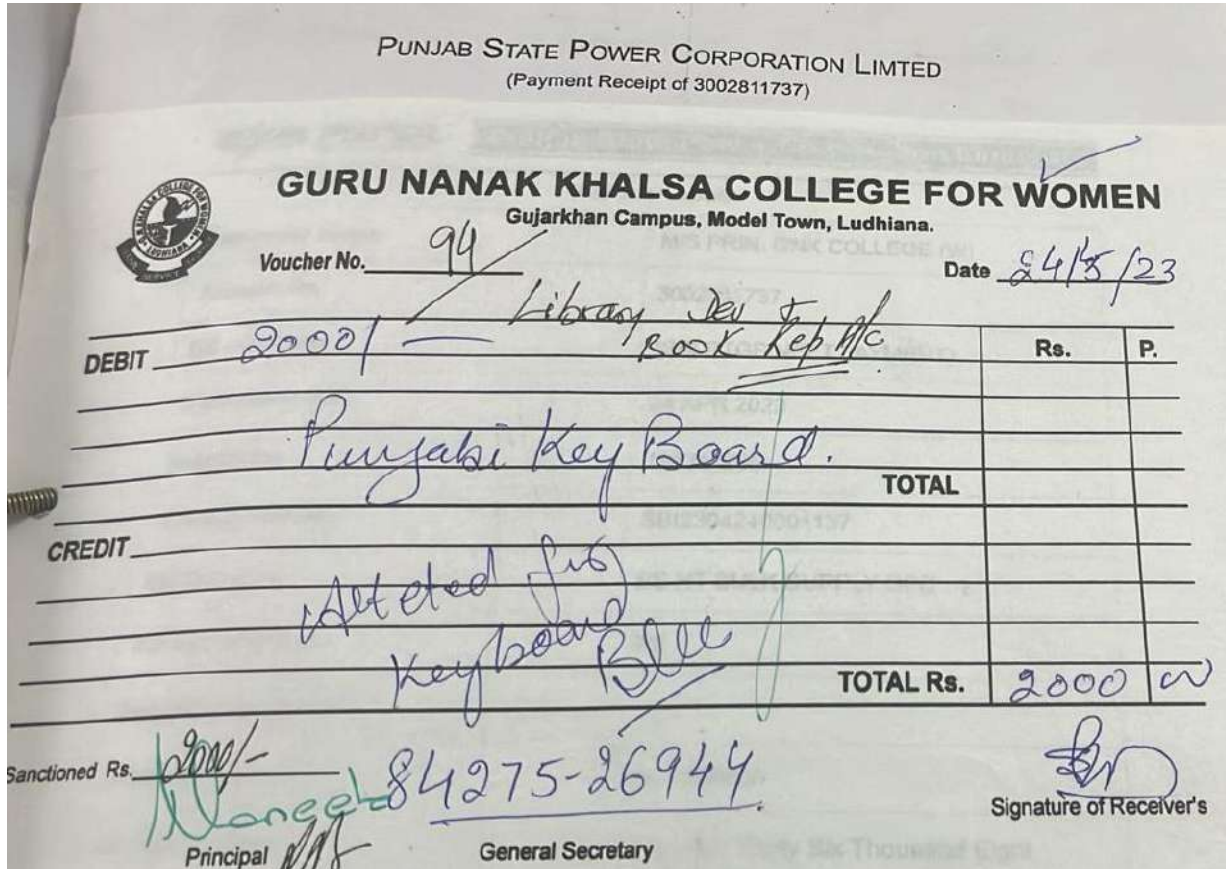 PUNJAB STATE POWER CORPORATION LIMTED
(Payment Receipt of 3002811737)
GURU NANAK KHALSA COLLEGE FOR WOMEN
Gujarkhan Campus, Model Town, Ludhiana.
Voucher No. 94
Date 24/5/23
Library Dev &
DEBIT 2000/- Book Rep A/c Rs. P.
Punjabi Key Board.
TOTAL
CREDIT
Atteted for
Keyboard
TOTAL Rs. 2000
Sanctioned Rs. 2000/-
84275-26944
Signature of Receiver's
Principal General Secretary